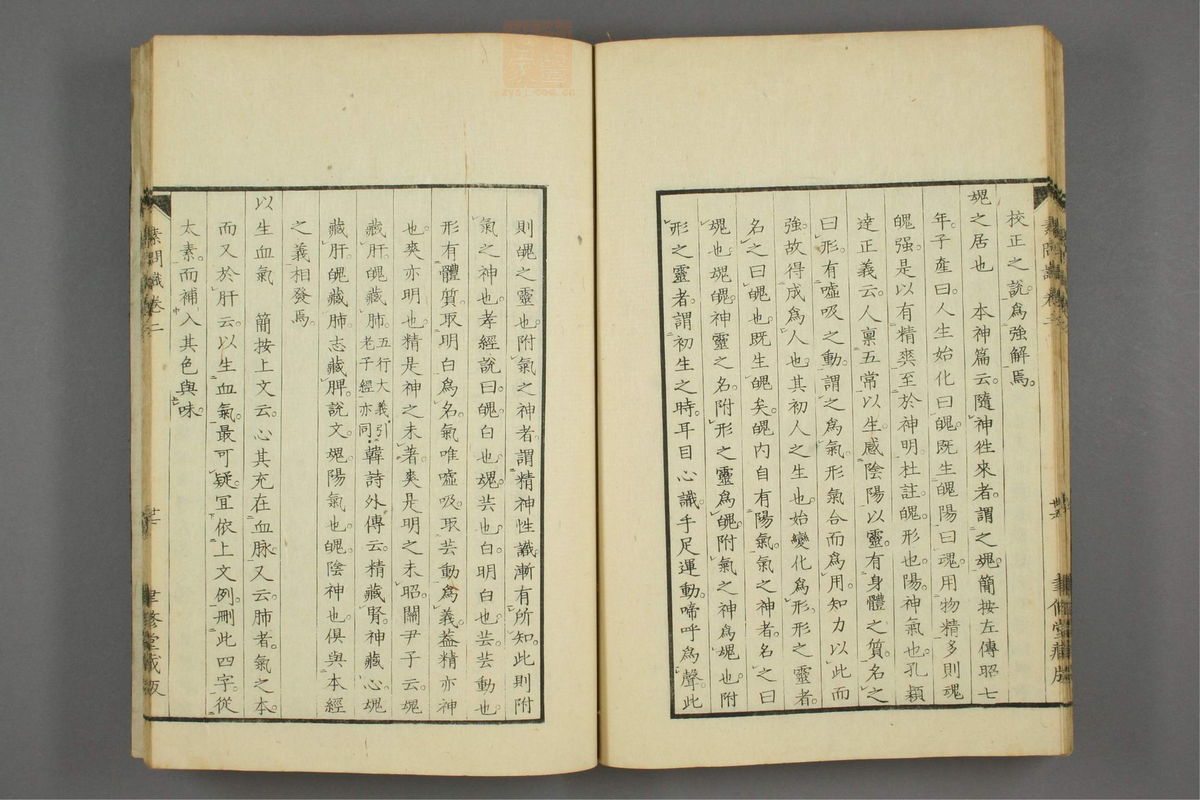 校正之說爲強解焉
魂之居也　本神篇云隨神徃來者謂之魂簡按左傳昭七
年子產曰人生始化曰魄既生魄陽曰魂用物精多則魂
魄强是以有精爽至於神明杜註魄形也陽神氣也孔穎
達正義云人稟五常以生感陰陽以靈有身體之質名之
曰形有噓吸之動謂之爲氣形氣合而爲用知力以此而
強故得成爲人也其初人之生也始變化爲形形之靈者
名之曰魄也既生魄矣魄内自有陽氣氣之神者名之曰
魂也魂魄神靈之名附形之靈爲魄附氣之神爲魂也附
形之靈者謂初生之時耳目心識手足運動啼呼爲聲此
則魄之靈也附氣之神者謂精神性識漸有所知此則附
氣之神也孝經說曰魄白也魂芸也白明白也芸芸動也
形有體質取明白爲名氣唯噓吸取芸動爲義葢精亦神
也爽亦明也精是神之未著爽是明之未昭關尹子云魂
藏肝魄藏肺五行大義引老子經亦同韓詩外傳云精藏腎神藏心魂
藏肝魄藏肺志藏脾說文魂陽氣也魄陰神也俱與本經
之義相發焉
以生血氣　簡按上文云心其充在血脉又云肺者氣之本
而又於肝云以生血氣最可疑冝依上文例刪此四字從
太素而補入其色與味
素問識卷二
廿
聿修堂藏版